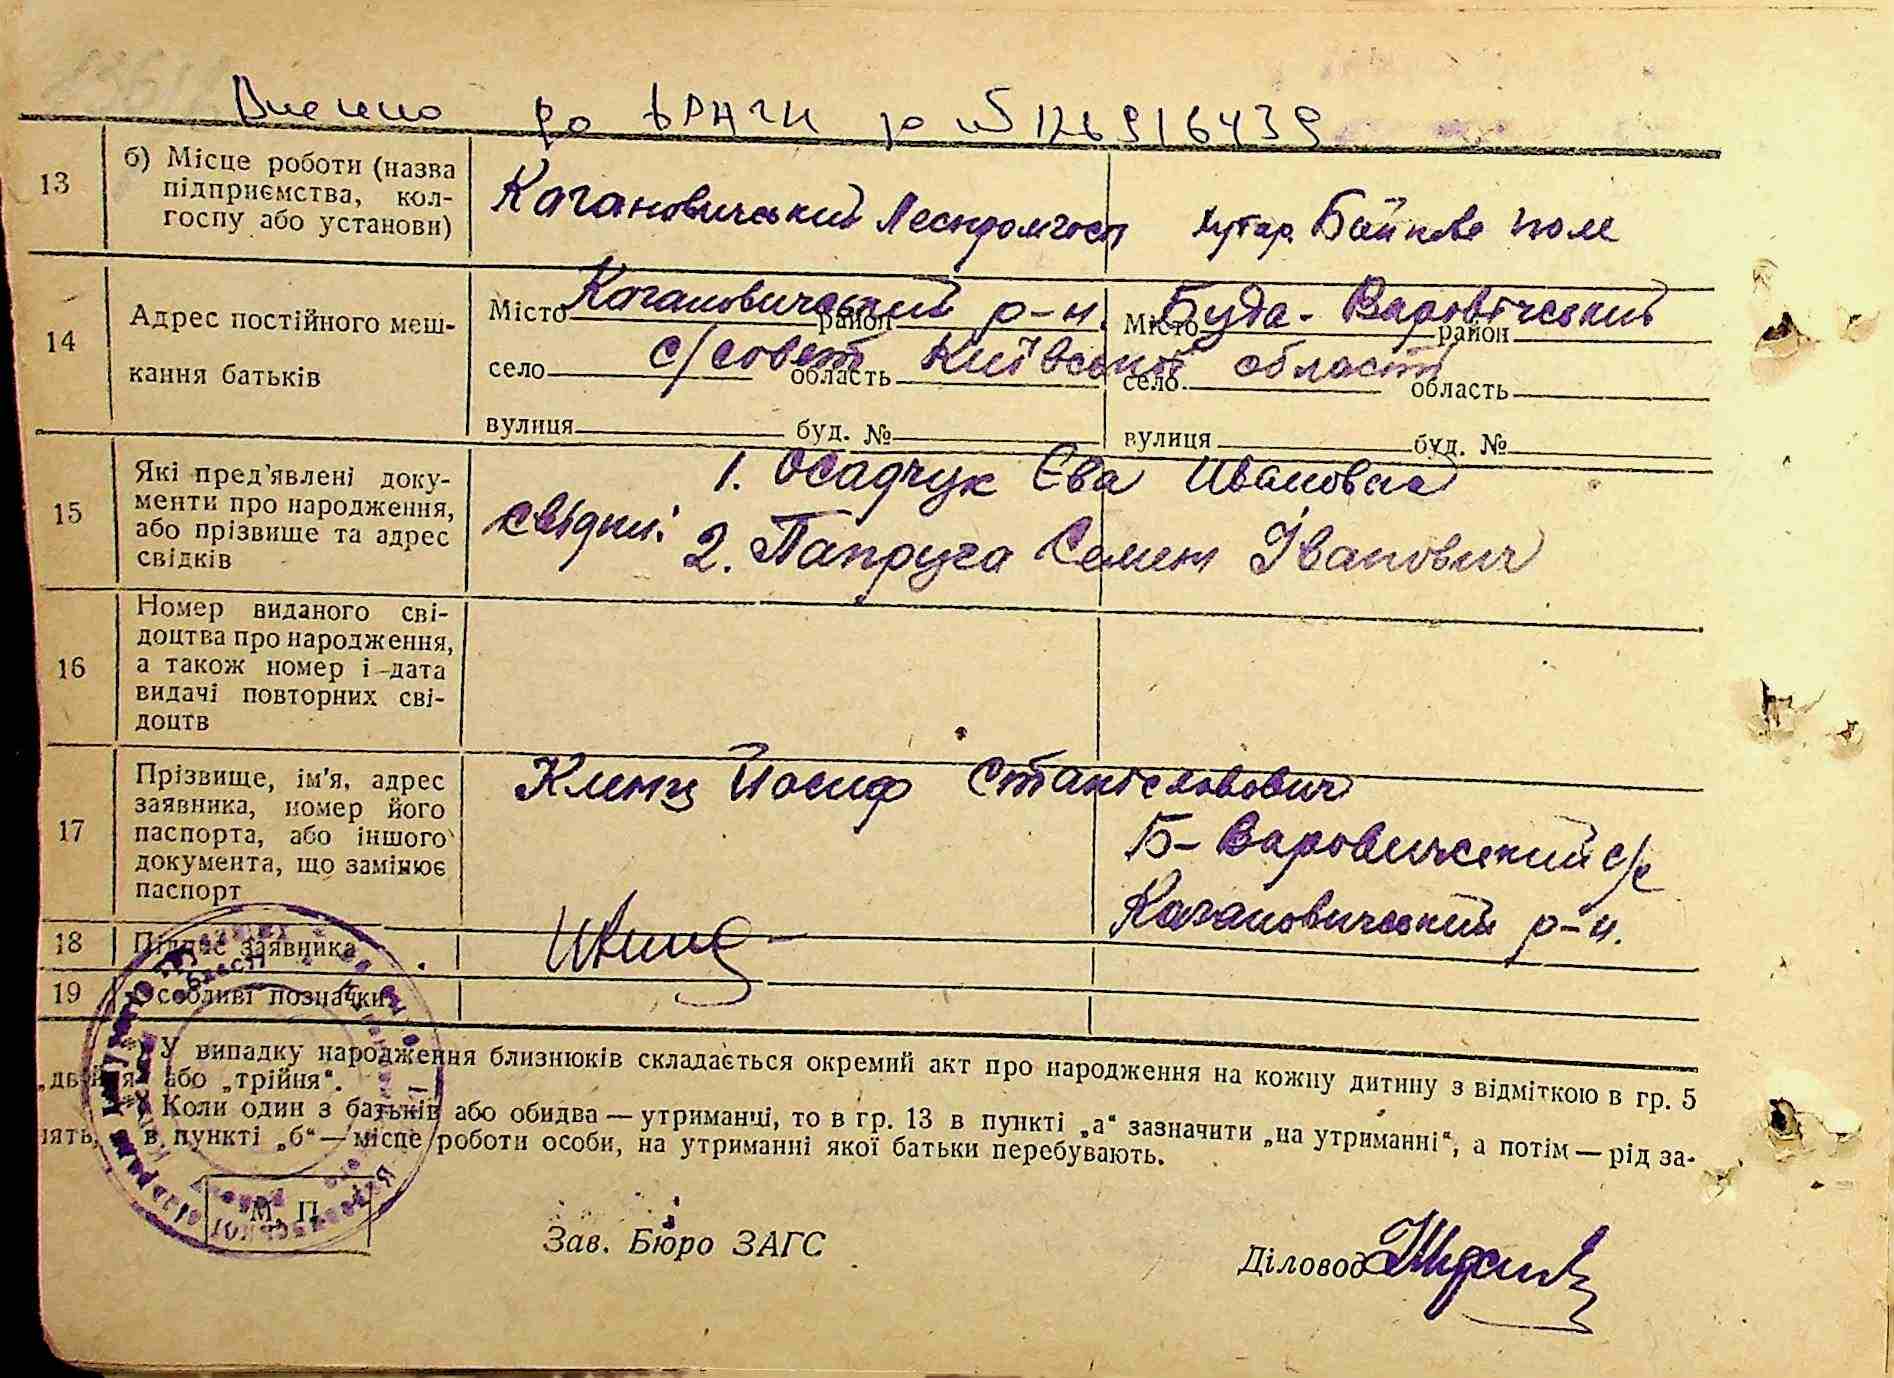 Внесено до ДРАЦГ за №126916439
13 б) Місце роботи (назва підприємства, колгоспу або установи)
Кагановичський Леспромгосп хутор. Байкове поле
14 Адрес постійного мешкання батьків
Місто район Місто район
Кагановичський р-н. Буда-Варовічський
село область село область
с/совет Київської області
вулиця буд. № вулиця буд. №
15 Які пред'явлені документи про народження, або прізвище та адрес свідків
1. Осадчук Єва Ивановна
свідки:
2. Папруга Семен Іванович
16 Номер виданого свідоцтва про народження, а також номер і дата видачі повторних свідоцтв
17 Прізвище, ім'я, адрес заявника, номер його паспорта, або іншого документа, що замінює паспорт
Кленц Йосиф Станіславович
Б-Варовичский с/с
Кагановичський р-н.
18 Підпис заявника
19 Особливі позначки
* У випадку народження близнюків складається окремий акт про народження на кожну дитину з відміткою в гр. 5
„двійня" або „трійня".
* Коли один з батьків або обидва — утриманці, то в гр. 13 в пункті „а" зазначити „на утриманні", а потім — рід за-
нять, в пункті „б" — місце роботи особи, на утриманні якої батьки перебувають.
М. П.
Зав. Бюро ЗАГС
Діловод